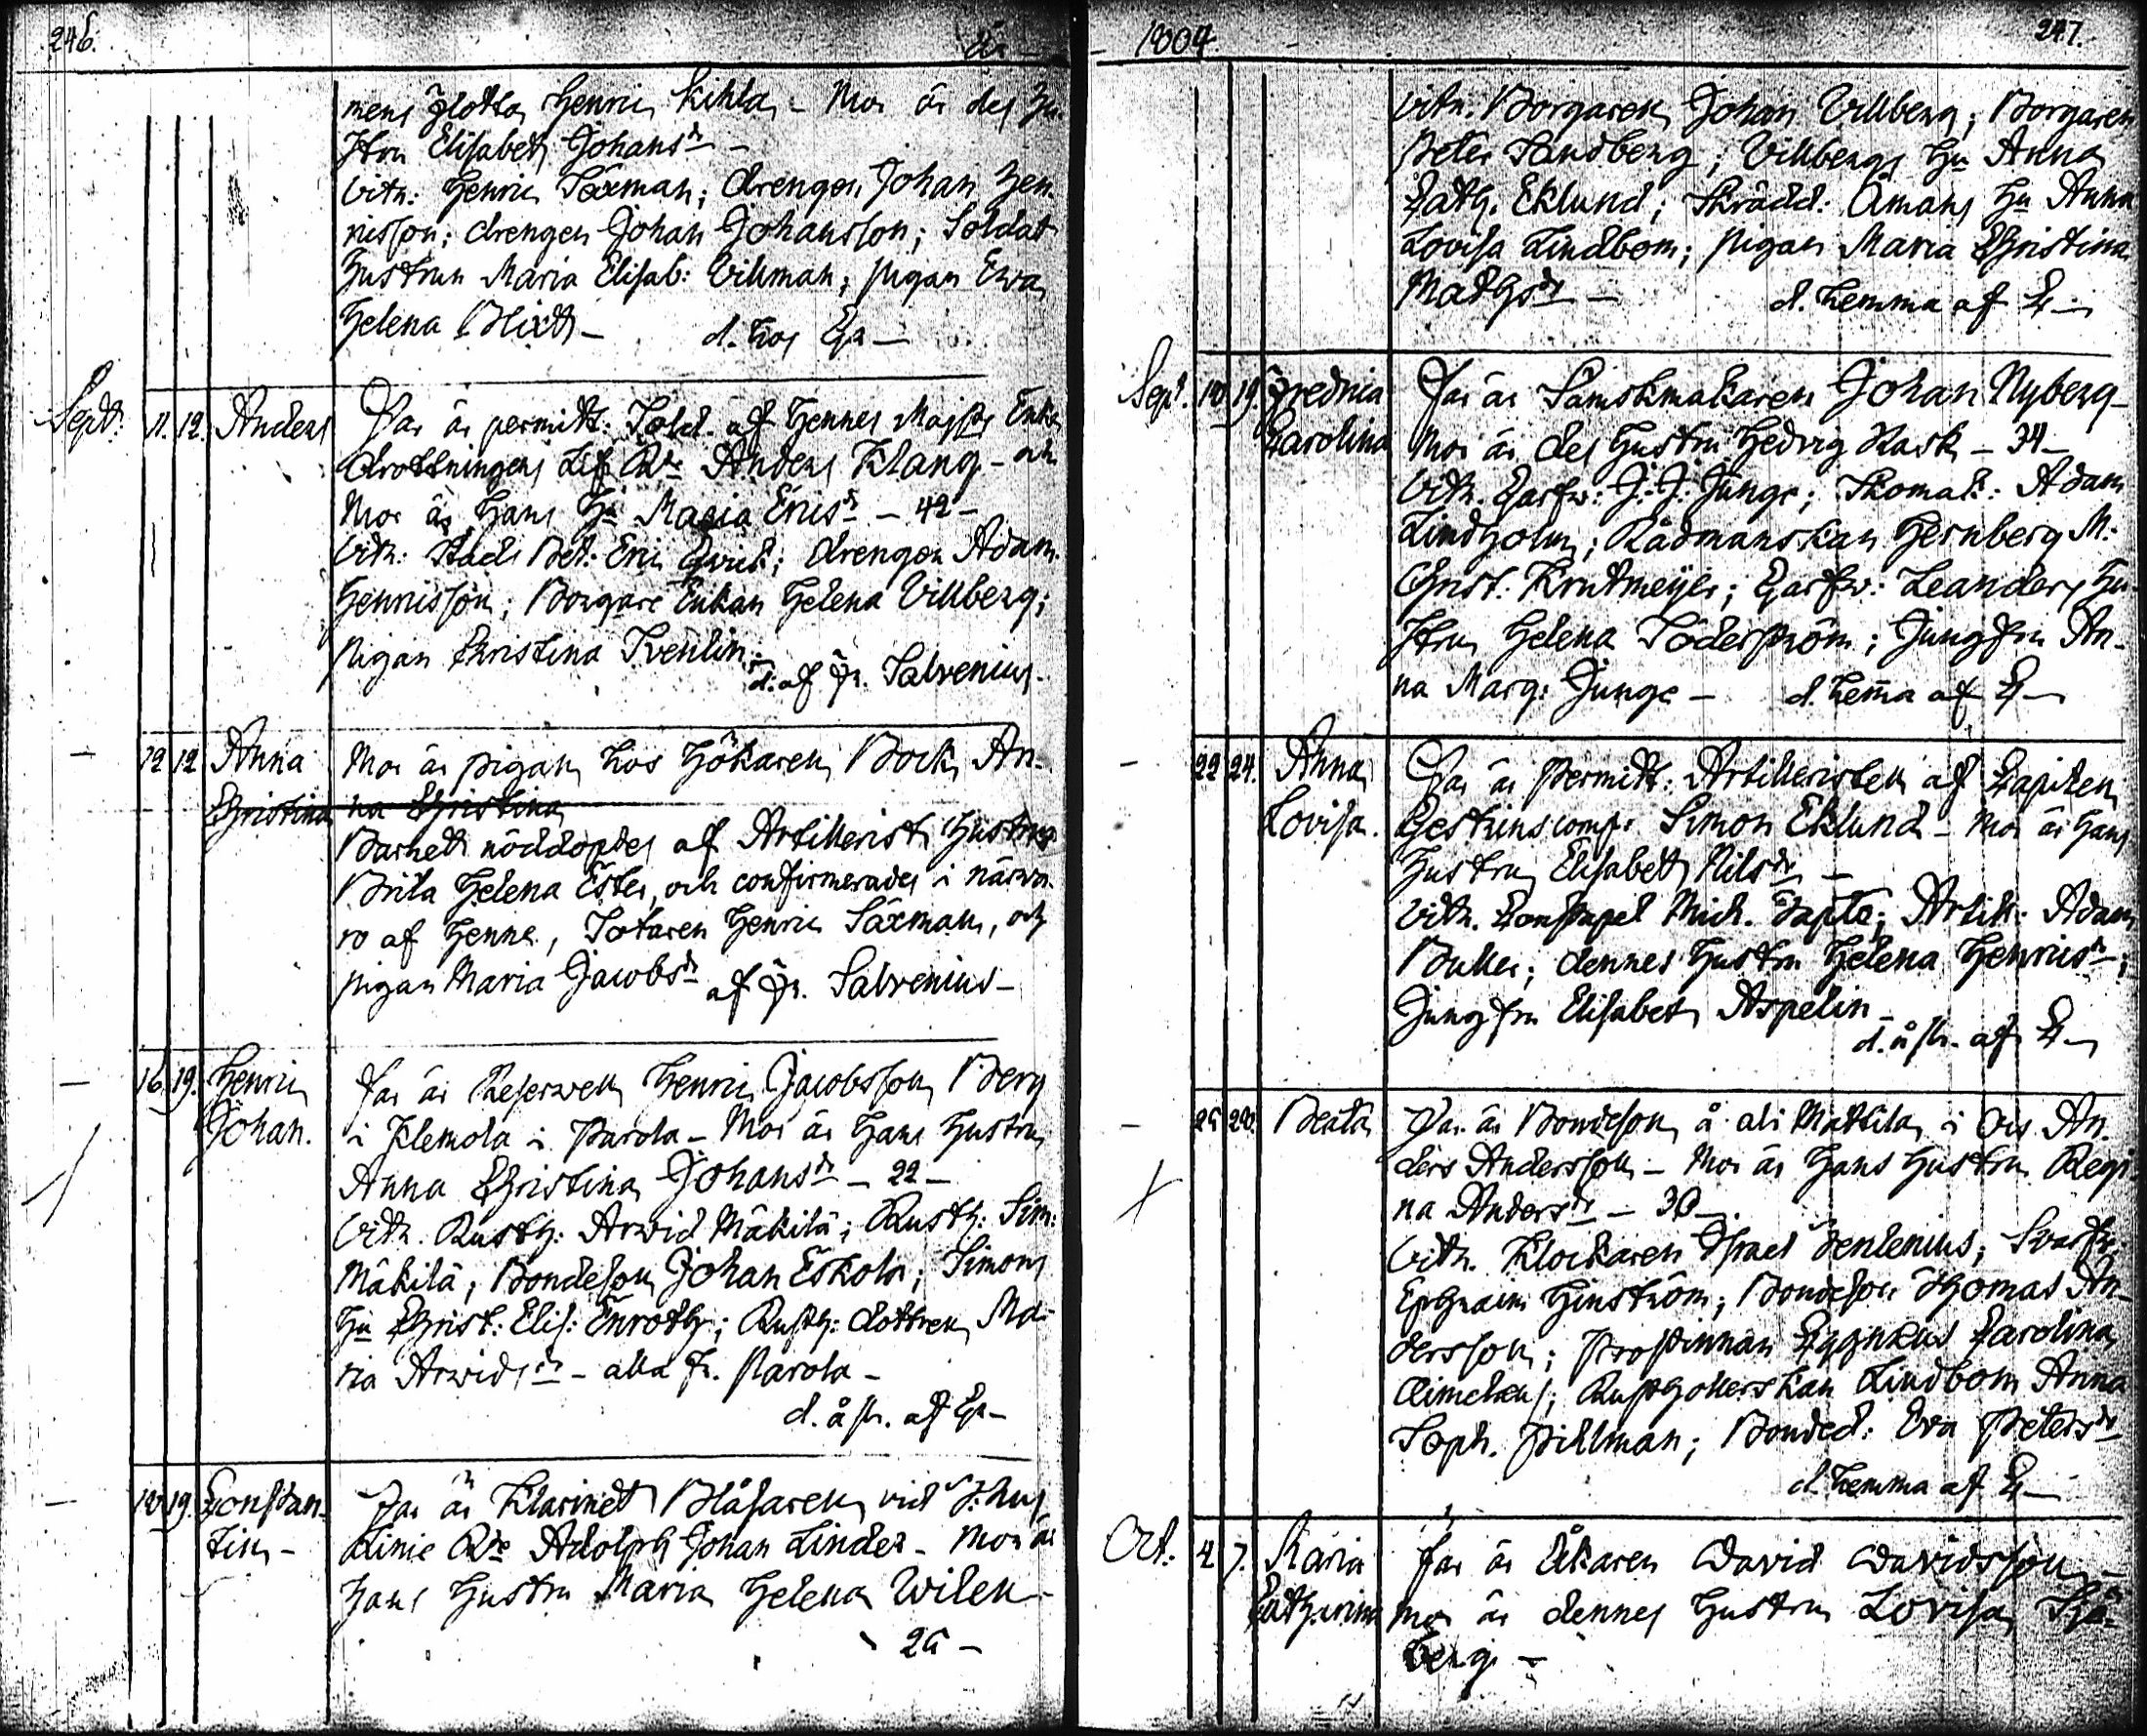 246.
år —
mens Flotta, Henric Kihla, – Mor är des Hu-
stru Elisabeth Johansdr –
Vitn: Henric Säxman; drengen Johan Hen-
ricsson; drengen Johan Johansson; Soldat
Hustrun Maria Elisab: Vikman; pigan Ewa
Helena Blixt – d. hos
Sept: 11. 12. Anders Far är permitt: Sold. af Hennes Majsts Enke
drottningens Lif Rte Anders Klang – och
Mor är Hans Hu Maria Ericsdr – 42 –
Vitn: Stads Bet: Eric Qvick; drengen Adam
Henricsson; Borgare Enkan Helena Villberg;
pigan Christina Svenlin –
d. af Hr. Salvenius –
– 12 12 Anna Mor är pigan hos Hökaren Bock, An-
Christina na Christina
Barnet nöddöptes af Artillerist Hustrun
Brita Helena Öster, och confirmerades i närva-
ro af Henne, Sotaren Henric Säxman, och
pigan Maria Jacobsdr af Hr. Salvenius –
– 16. 19. Henric Far är Reserven Henric Jacobsson Berg
Johan. i Klemola i Parola – Mor är Hans Hustru
Anna Christina Johansdr – 22 –
Vitn. Rusth: Arvid Mäkilä; Rusth: Sim:
Mäkilä; Bondeson Johan Eskola; Simons
Hu Christ: Elis: Enroth; Rusth: dottren Ma-
ria Arvidsdr – alla fr. Parola –
d. å st. af
– 18 19. Constan- Far är Klarinet Blåsaren vid Hus
tin – Linie Rte Adolph Johan Linder – Mor är
Hans Hustru Maria Helena Wilen –
25 –
– 1804 – 247.
Vitn. Borgaren Johan Villberg; Borgaren
Peter Sandberg; Villbergs Hu Anna
Cath. Eklund; Skrädd: Åmans Hu Anna
Lovisa Lindbom; pigan Maria Christina
Mathsdr – d. hemma af
Sept. 18 19. Fredrica Far är Sämskmakaren Johan Nyberg –
Carolina Mor är des Hustru Hedvig Rask – 34 –
Vitn. Garfv: J. J. Junge; Skomak: Adam
Lindholm; Rådmanskan Hernberg M:
Christ: Krutmeijer; Garfv: Leanders Hu-
stru Helena Söderström; Jungfru An-
na Marg: Junge – d. hema af
– 22 24. Anna Far är Permitt: Artilleristen af Capiten
Lovisa. Gestrins comp: Simon Eklund – Mor är Hans
Hustru Elisabeth Nilsdr –
Vitn. Constapel Mich. Artill: Adam
Buller; dennes Hustru Helena Henricsdr;
Jungfru Elisabeth Aspelin –
d. å st. af
– 25 28. Beata Far är Bondeson å ali Mattila i Ois An-
ders Andersson – Mor är Hans Hustru Regi-
na Andersdr – 38 –
Vitn. Klockaren Israel Svarfv:
Ephraim Hinström; Bondeson Thomas An-
dersson; Prostinnan Carolina
Rusthollerskan Lindbom Anna
Soph. Pillman; Bonded: Eva Petersdr
d. hemma af
Oct: 4 7. Maria Far är Åkaren David Davidsson –
Catharina mor är dennes Hustru Lovisa Sjö-
berg –